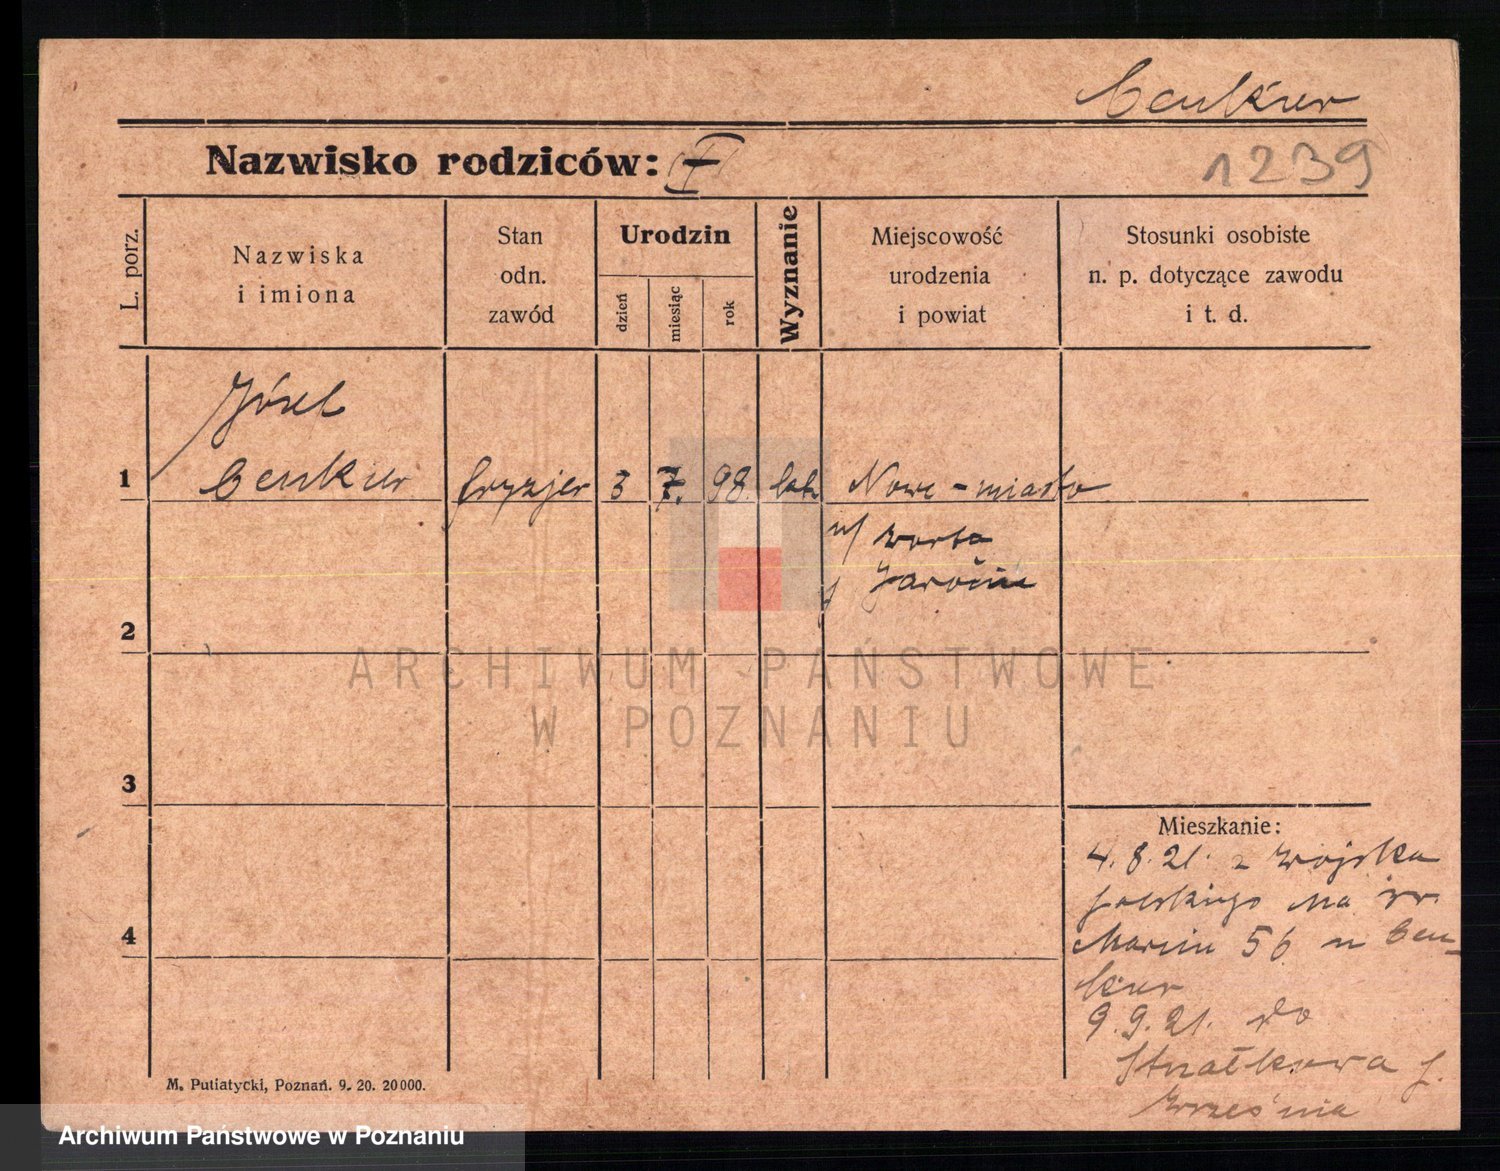 Cenkier
Nazwisko rodziców: I
1239
L. porz.
Nazwiska
i imiona
Stan
odn.
zawód
Urodzin
dzień
miesiąc
rok
Wyznanie
Miejscowość
urodzenia
i powiat
Stosunki osobiste
n. p. dotyczące zawodu
i t. d.
Józef
1 Cenkier fryzjer 3 7. 98. kat. Nowe-miasto
n/ Warta
p Jarocin
2
3
4
Mieszkanie:
4.8.21. z wojska
polskiego na św.
Marcin 56 u Cen-
kier
9.9.21. do
Strzałkowa p.
Września
M. Putiatycki, Poznań. 9. 20. 20000.
ARCHIWUM PAŃSTWOWE
W POZNANIU
Archiwum Państwowe w Poznaniu